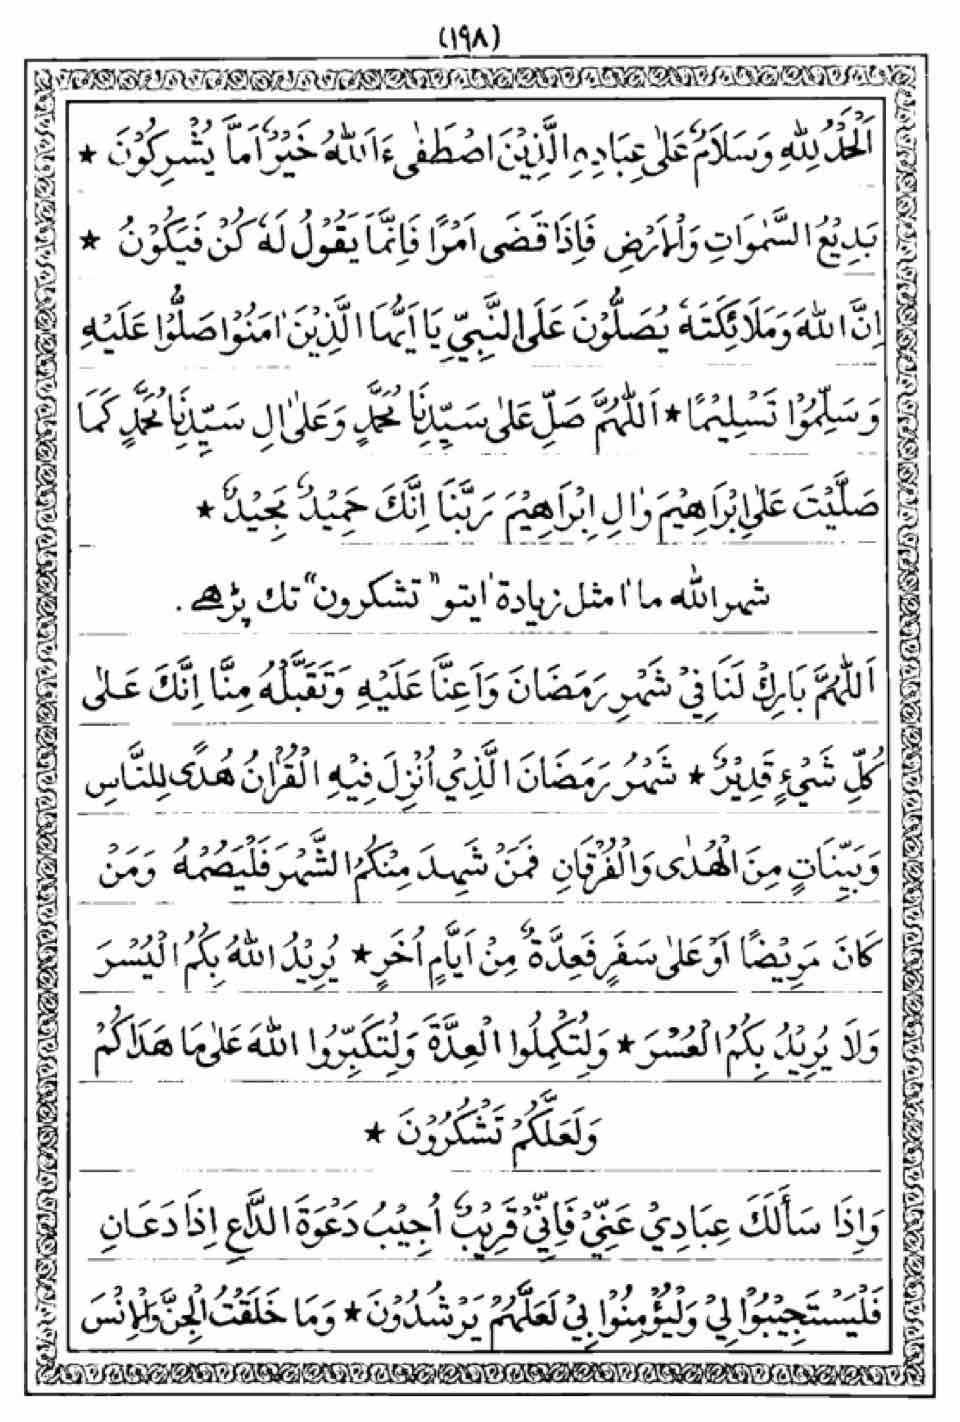 (١٩٨)
اَلْحَمْدُ لِلّٰهِ وَسَلَامٌ عَلٰى عِبَادِهِ الَّذِيْنَ اصْطَفٰى ءَاَللّٰهُ خَيْرٌ اَمَّا يُشْرِكُوْنَ ★
بَدِيْعُ السَّمٰوَاتِ وَالْاَرْضِ فَاِذَا قَضَى اَمْرًا فَاِنَّمَا يَقُوْلُ لَهٗ كُنْ فَيَكُوْنُ ★
اِنَّ اللّٰهَ وَمَلَائِكَتَهٗ يُصَلُّوْنَ عَلَى النَّبِيِّ يَا اَيُّهَا الَّذِيْنَ اٰمَنُوْا صَلُّوْا عَلَيْهِ
وَسَلِّمُوْا تَسْلِيْمًا ★ اَللّٰهُمَّ صَلِّ عَلٰى سَيِّدِنَا مُحَمَّدٍ وَعَلٰى اٰلِ سَيِّدِنَا مُحَمَّدٍ كَمَا
صَلَّيْتَ عَلٰى اِبْرَاهِيْمَ وَاٰلِ اِبْرَاهِيْمَ رَبَّنَا اِنَّكَ حَمِيْدٌ مَجِيْدٌ ★
شهر الله ما اٰمثل زيادة اٰيتو "تشكرون" تك پڑهے .
اَللّٰهُمَّ بَارِكْ لَنَا فِيْ شَهْرِ رَمَضَانَ وَاَعِنَّا عَلَيْهِ وَتَقَبَّلْهُ مِنَّا اِنَّكَ عَلٰى
كُلِّ شَيْءٍ قَدِيْرٌ ★ شَهْرُ رَمَضَانَ الَّذِيْ اُنْزِلَ فِيْهِ الْقُرْاٰنُ هُدًى لِلنَّاسِ
وَبَيِّنَاتٍ مِنَ الْهُدٰى وَالْفُرْقَانِ فَمَنْ شَهِدَ مِنْكُمُ الشَّهْرَ فَلْيَصُمْهُ وَمَنْ
كَانَ مَرِيْضًا اَوْ عَلٰى سَفَرٍ فَعِدَّةٌ مِنْ اَيَّامٍ اُخَرٍ ★ يُرِيْدُ اللّٰهُ بِكُمُ الْيُسْرَ
وَلَا يُرِيْدُ بِكُمُ الْعُسْرَ ★ وَلِتُكْمِلُوا الْعِدَّةَ وَلِتُكَبِّرُوا اللّٰهَ عَلٰى مَا هَدَاكُمْ
وَلَعَلَّكُمْ تَشْكُرُوْنَ ★
وَاِذَا سَأَلَكَ عِبَادِيْ عَنِّيْ فَاِنِّيْ قَرِيْبٌ اُجِيْبُ دَعْوَةَ الدَّاعِ اِذَا دَعَانِ
فَلْيَسْتَجِيْبُوْا لِيْ وَلْيُؤْمِنُوْا بِيْ لَعَلَّهُمْ يَرْشُدُوْنَ ★ وَمَا خَلَقْتُ الْجِنَّ وَالْاِنْسَ